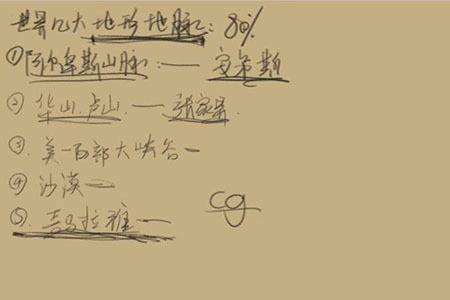 世界几大地形地脉：80%
①阿尔卑斯山脉：— 安第斯
②华山.卢山.— 张家界.
③.美—西部大峡谷—
④沙漠—
⑤.喜马拉雅—
cg